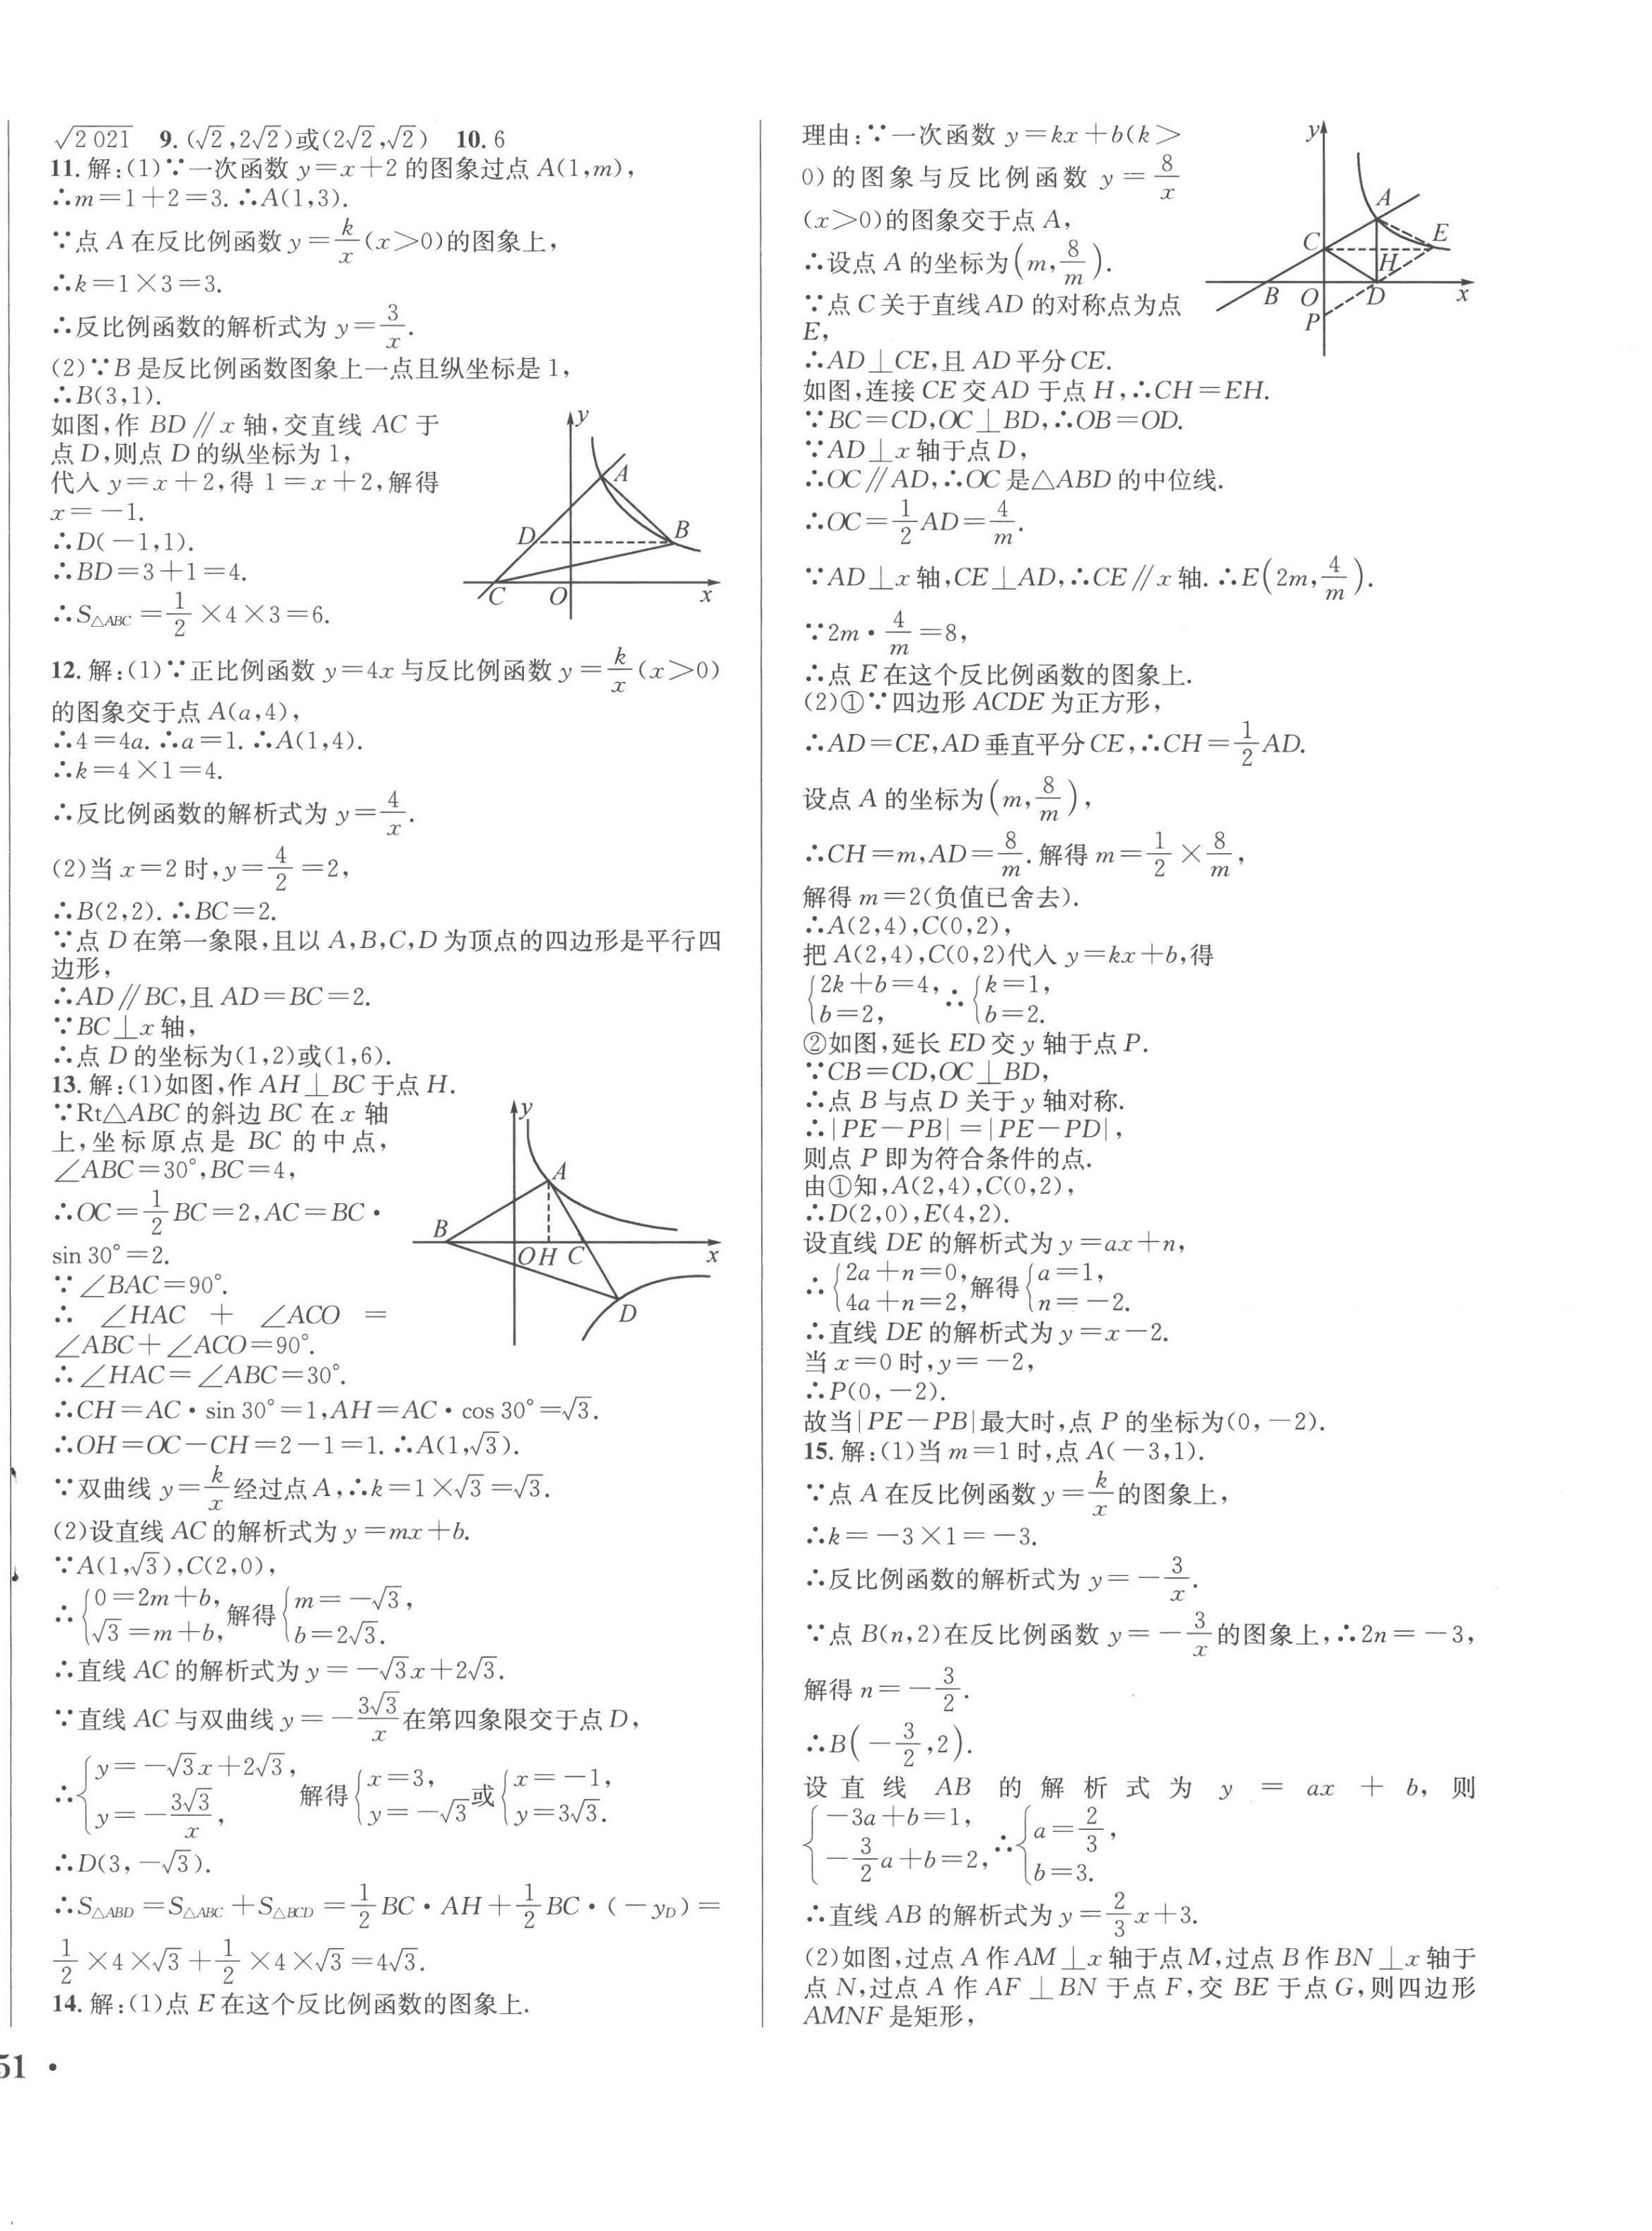 √2 021　9.(√2,2√2)或(2√2,√2)　10.6
11.解:(1)∵一次函数 y=x+2 的图象过点 A(1,m),
∴m=1+2=3.∴A(1,3).
∵点 A 在反比例函数 y=k/x(x>0)的图象上,
∴k=1×3=3.
∴反比例函数的解析式为 y=3/x.
(2)∵B 是反比例函数图象上一点且纵坐标是 1,
∴B(3,1).
如图,作 BD∥x 轴,交直线 AC 于
点 D,则点 D 的纵坐标为 1,
代入 y=x+2,得 1=x+2,解得
x=-1.
∴D(-1,1).
∴BD=3+1=4.
∴S△ABC=1/2×4×3=6.
y
A
D
B
C
O
x
12.解:(1)∵正比例函数 y=4x 与反比例函数 y=k/x(x>0)
的图象交于点 A(a,4),
∴4=4a.∴a=1.∴A(1,4).
∴k=4×1=4.
∴反比例函数的解析式为 y=4/x.
(2)当 x=2 时,y=4/2=2,
∴B(2,2).∴BC=2.
∵点 D 在第一象限,且以 A,B,C,D 为顶点的四边形是平行四
边形,
∴AD∥BC,且 AD=BC=2.
∵BC⊥x 轴,
∴点 D 的坐标为(1,2)或(1,6).
13.解:(1)如图,作 AH⊥BC 于点 H.
∵Rt△ABC 的斜边 BC 在 x 轴
上,坐标原点是 BC 的中点,
∠ABC=30°,BC=4,
∴OC=1/2BC=2,AC=BC·
sin 30°=2.
∵∠BAC=90°.
∴ ∠HAC + ∠ACO =
∠ABC+∠ACO=90°.
∴∠HAC=∠ABC=30°.
y
A
B
O H C
x
D
∴CH=AC·sin 30°=1,AH=AC·cos 30°=√3.
∴OH=OC-CH=2-1=1.∴A(1,√3).
∵双曲线 y=k/x经过点 A,∴k=1×√3=√3.
(2)设直线 AC 的解析式为 y=mx+b.
∵A(1,√3),C(2,0),
∴{0=2m+b, √3=m+b, 解得{m=-√3, b=2√3.
∴直线 AC 的解析式为 y=-√3x+2√3.
∵直线 AC 与双曲线 y=-3√3/x在第四象限交于点 D,
∴{y=-√3x+2√3, y=-3√3/x, 解得{x=3, y=-√3或{x=-1, y=3√3.
∴D(3,-√3).
∴S△ABD=S△ABC+S△BCD=1/2BC·AH+1/2BC·(-yD)=
1/2×4×√3+1/2×4×√3=4√3.
14.解:(1)点 E 在这个反比例函数的图象上.
51 ·
理由:∵一次函数 y=kx+b(k>
0)的图象与反比例函数 y=8/x
(x>0)的图象交于点 A,
∴设点 A 的坐标为(m,8/m).
∵点 C 关于直线 AD 的对称点为点
E,
∴AD⊥CE,且 AD 平分 CE.
y
A
C
E
H
B O D
x
P
如图,连接 CE 交 AD 于点 H,∴CH=EH.
∵BC=CD,OC⊥BD,∴OB=OD.
∵AD⊥x 轴于点 D,
∴OC∥AD,∴OC 是△ABD 的中位线.
∴OC=1/2AD=4/m.
∵AD⊥x 轴,CE⊥AD,∴CE∥x 轴.∴E(2m,4/m).
∵2m·4/m=8,
∴点 E 在这个反比例函数的图象上.
(2)①∵四边形 ACDE 为正方形,
∴AD=CE,AD 垂直平分 CE,∴CH=1/2AD.
设点 A 的坐标为(m,8/m),
∴CH=m,AD=8/m.解得 m=1/2×8/m,
解得 m=2(负值已舍去).
∴A(2,4),C(0,2),
把 A(2,4),C(0,2)代入 y=kx+b,得
{2k+b=4, b=2, ∴{k=1, b=2.
②如图,延长 ED 交 y 轴于点 P.
∵CB=CD,OC⊥BD,
∴点 B 与点 D 关于 y 轴对称.
∴|PE-PB|=|PE-PD|,
则点 P 即为符合条件的点.
由①知,A(2,4),C(0,2),
∴D(2,0),E(4,2).
设直线 DE 的解析式为 y=ax+n,
∴{2a+n=0, 4a+n=2, 解得{a=1, n=-2.
∴直线 DE 的解析式为 y=x-2.
当 x=0 时,y=-2,
∴P(0,-2).
故当|PE-PB|最大时,点 P 的坐标为(0,-2).
15.解:(1)当 m=1 时,点 A(-3,1).
∵点 A 在反比例函数 y=k/x的图象上,
∴k=-3×1=-3.
∴反比例函数的解析式为 y=-3/x.
∵点 B(n,2)在反比例函数 y=-3/x的图象上,∴2n=-3,
解得 n=-3/2.
∴B(-3/2,2).
设直线 AB 的解析式为 y=ax+b,则
{-3a+b=1, -3/2a+b=2, ∴{a=2/3, b=3.
∴直线 AB 的解析式为 y=2/3x+3.
(2)如图,过点 A 作 AM⊥x 轴于点 M,过点 B 作 BN⊥x 轴于
点 N,过点 A 作 AF⊥BN 于点 F,交 BE 于点 G,则四边形
AMNF 是矩形,